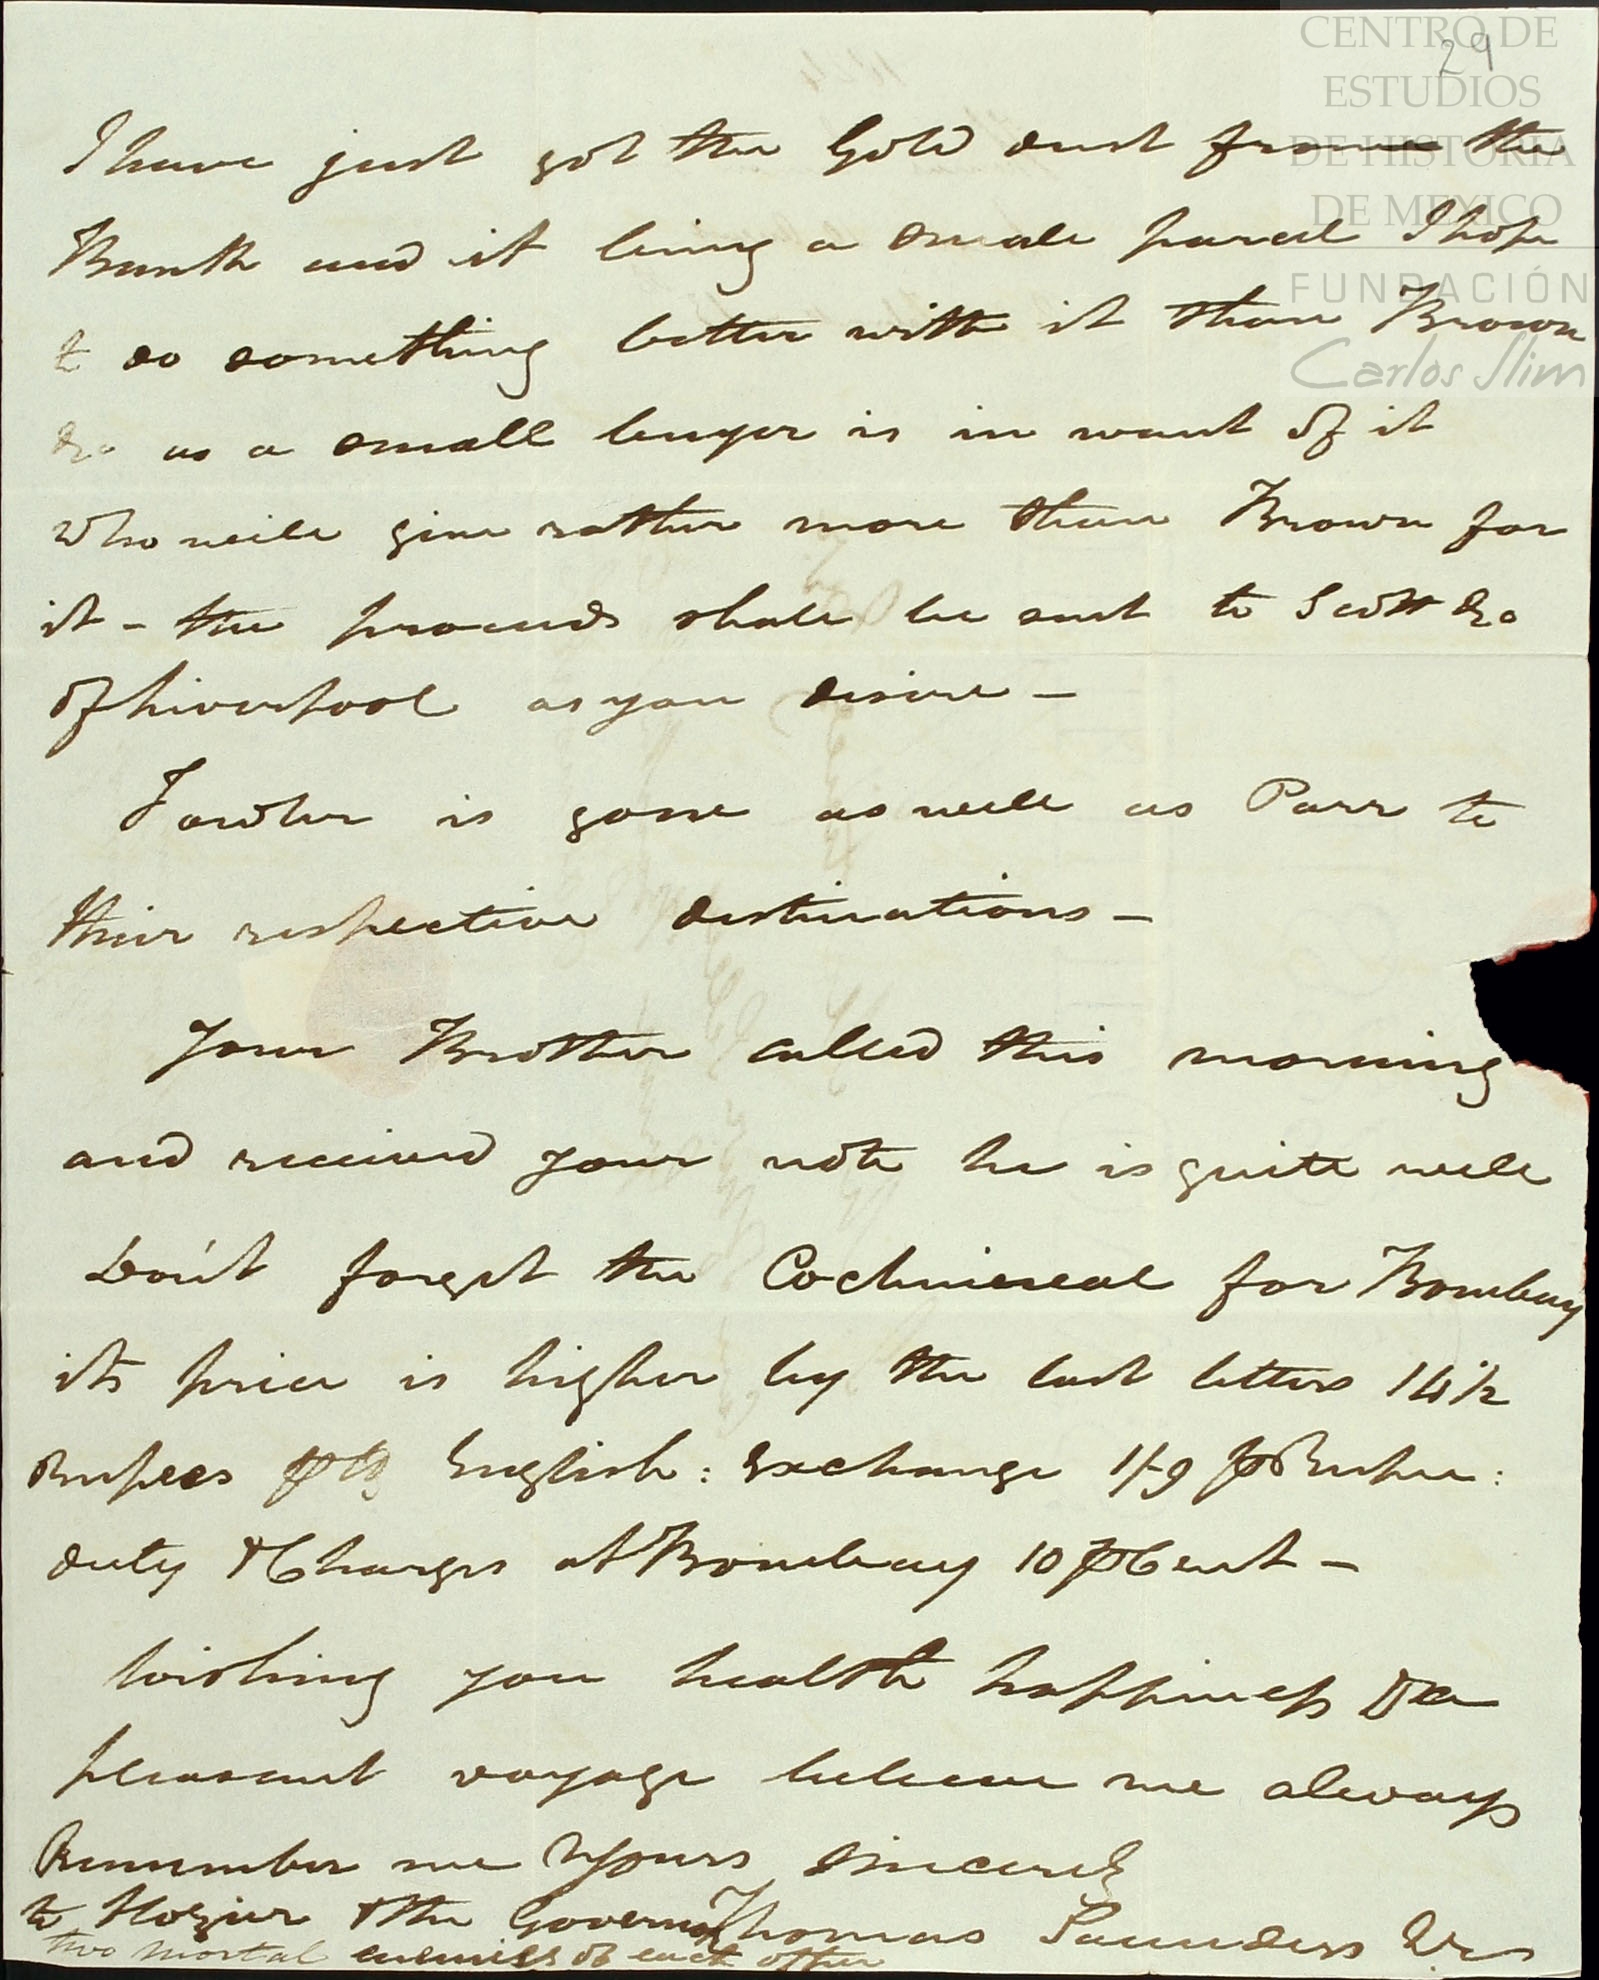 CENTRO DE
ESTUDIOS
DE HISTORIA
DE MEXICO
FUNDACIÓN
Carlos Slim
29
I have just got the Gold dust from the
Bank and it being a small parcel I hope
to do something better with it than Brown
&co as a small buyer is in want of it
who will give rather more than Brown for
it - the proceeds shall be sent to Scott &co
of Liverpool as you desire -
Fowler is gone as well as Parr to
their respective destinations -
Your Brother called this morning
and received your note he is quite well
Don't forget the Cochineal for Bombay
its price is higher by the last letters 14½
Rupees ⅌ lb English : Exchange 1/-9 ⅌ Rupee :
duty & Charges at Bombay 10 ⅌ Cent -
Wishing you health happiness & a
pleasant voyage believe me always
Remember me Yours Sincerely
to Hozier & the Governor Thomas Saunders
two mortal enemies of each other